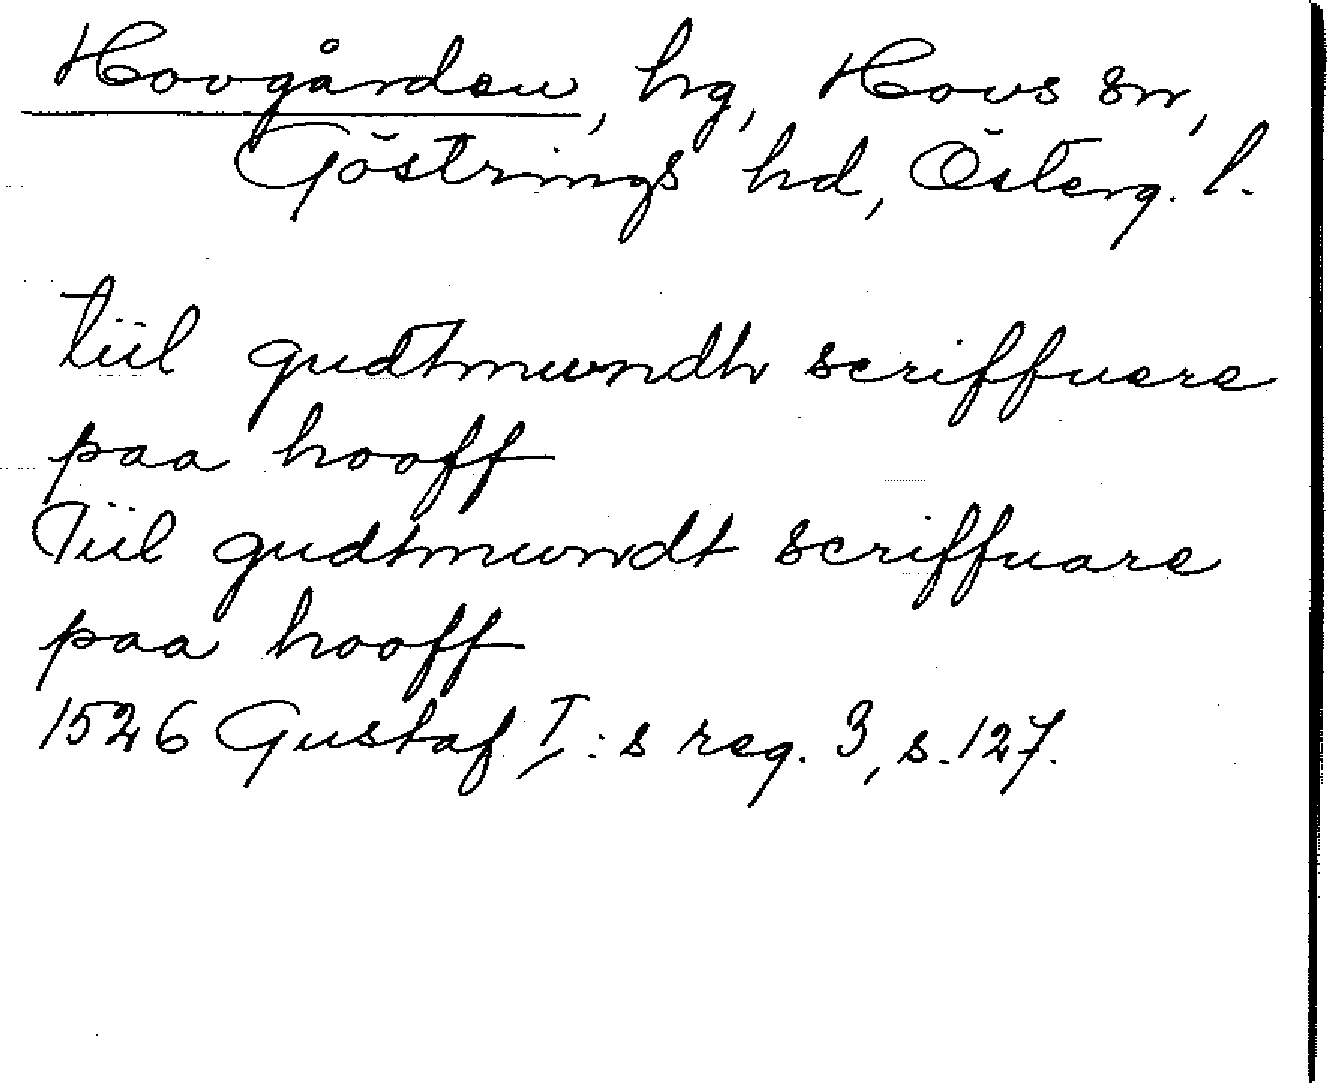 Hovgården, hg, Hovs sn,
Göstrings hd, Österg. l.
tiil gudtmundh scriffuere
paa hooff
Tiil gudtmundt scriffuare
paa hooff
1526 Gustaf I:s reg. 3, s. 127.